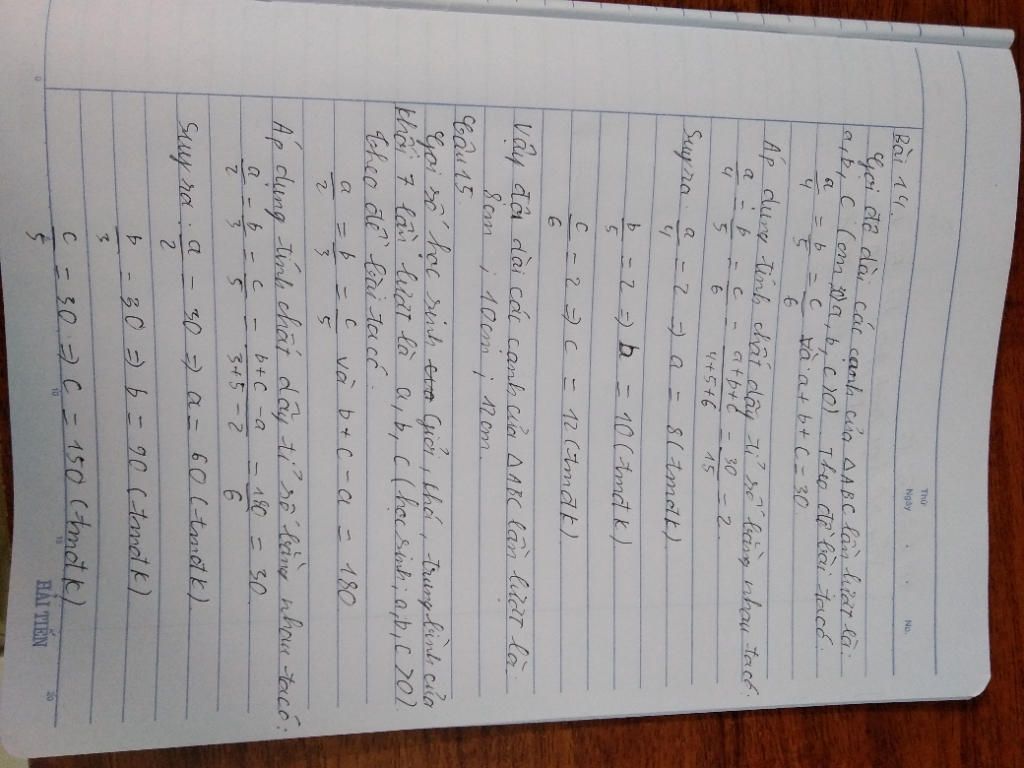 Thứ
Ngày . . No.
Bài 14.
Gọi độ dài các cạnh của △ABC lần lượt là:
a, b, c (cm, a, b, c > 0). Theo đề bài ta có
a/4 = b/5 = c/6 và a + b + c = 30
Áp dụng tính chất dãy tỉ số bằng nhau ta có:
a/4 = b/5 = c/6 = a+b+c/4+5+6 = 30/15 = 2.
Suy ra: a/4 = 2 => a = 8 (tmđk).
b/5 = 2 => b = 10 (tmđk)
c/6 = 2 => c = 12 (tmđk)
Vậy độ dài các cạnh của △ABC lần lượt là
8cm ; 10cm ; 12cm.
Câu 15.
Gọi số học sinh Giỏi, khá, trung bình của
khối 7 lần lượt là a, b, c (học sinh, a, b, c > 0).
Theo đề bài ta có:
a/2 = b/3 = c/5 và b + c - a = 180
Áp dụng tính chất dãy tỉ số bằng nhau ta có:
a/2 = b/3 = c/5 = b+c-a/3+5-2 = 180/6 = 30
Suy ra: a/2 = 30 => a = 60 (tmđk).
b/3 = 30 => b = 90 (tmđk)
c/5 = 30 => c = 150 (tmđk)
0 10 15 HẢI TIẾN 20